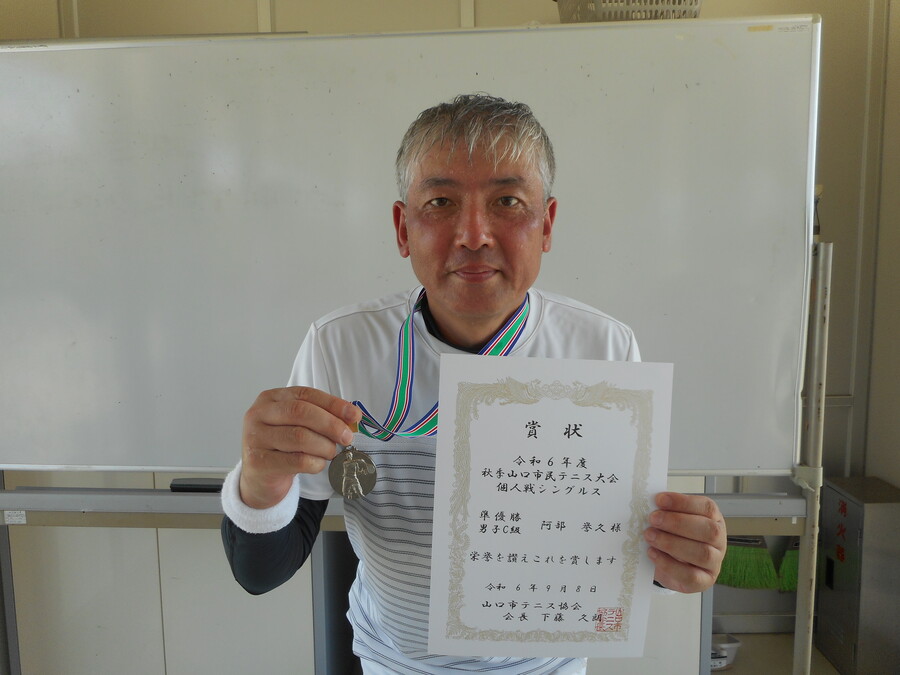 賞状
令和6年度
秋季山口市民テニス大会
個人戦シングルス
準優勝
男子C級 阿部 誉久様
栄誉を讃えこれを賞します
令和6年9月8日
山口市テニス協会
会長 下藤 久朗
消火器